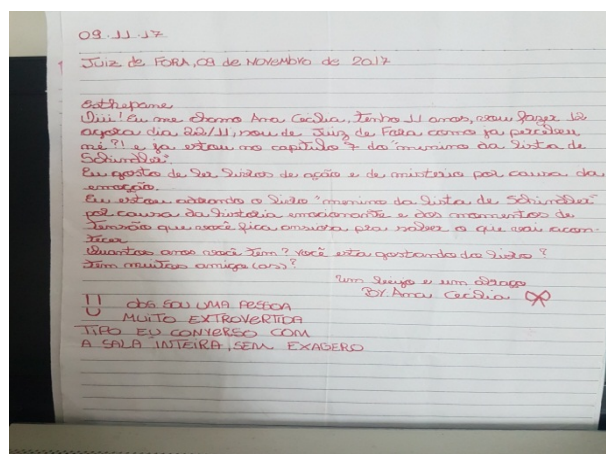 09.11.17
Juiz de FORA, 09 de NOVEMBRO de 2017
Esthepane
Oiii! Eu me chamo Ana Cecília, Tenho 11 anos, vou fazer 12
agora dia 22/11, sou de Juiz de Fora como ja percebeu
né?! e ja estou no capitulo 7 do "menino da lista de
Schindler".
Eu gosto de ler livros de ação e de misterio por causa da
emoção.
Eu estou adorando o livro "menino da lista de Schindler"
por causa da historia emocionante e dos momentos de
Tensão que você fica ansiosa pra saber o que vai acon-
tecer
Quantos anos você Tem? você esta gostando do livro?
Tem muitos amigo(as)?
"um beijo e um abraço
BY Ana Cecília
OBS SOU UMA PESSOA
MUITO EXTROVERTIDA
TIPO EU CONVERSO COM
A SALA INTEIRA, SEM EXAGERO